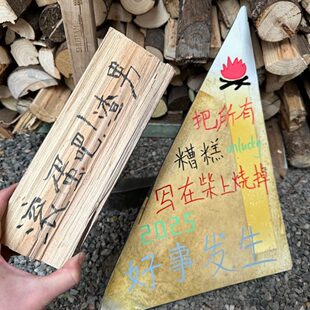 滚蛋吧!渣男
把所有
糟糕 unlucky
写在柴上烧掉
2025
好事发生